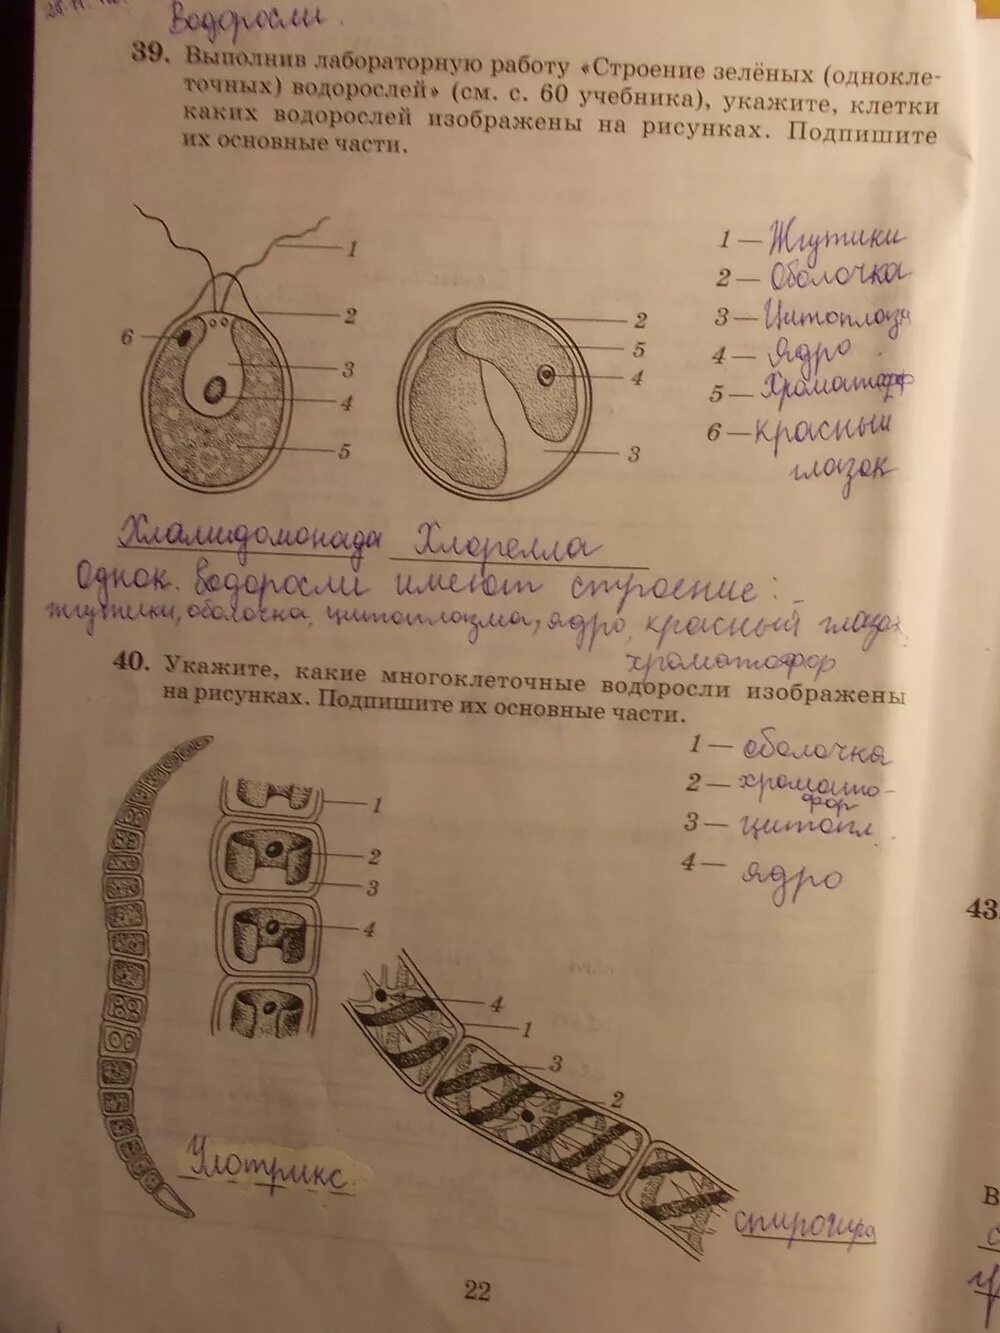 Водоросли.
39. Выполнив лабораторную работу «Строение зелёных (однокле-
точных) водорослей» (см. с. 60 учебника), укажите, клетки
каких водорослей изображены на рисунках. Подпишите
их основные части.
1
2
6
3
4
5
2
5
4
3
1 — Жгутики
2 — Оболочка
3 — Цитоплаза
4 — Ядро
5 — Хроматофф
6 — красный
глазок
Хламидомонада Хлорелла
Однок. водоросли имеют строение:
жгутики, оболочка, цитоплазма, ядро, красный глазок
хроматофор
40. Укажите, какие многоклеточные водоросли изображены
на рисунках. Подпишите их основные части.
1 — оболочка
2 — хромато-
фор
3 — цитопл.
4 — ядро
1
2
3
4
4
1
3
2
Улотрикс
спирогира
22
43
В